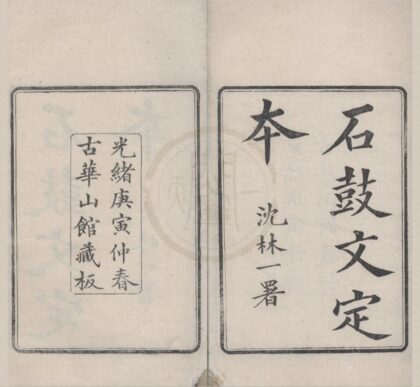 石鼓文定
本
沈林一署
光緒庚寅仲春
古華山館藏板